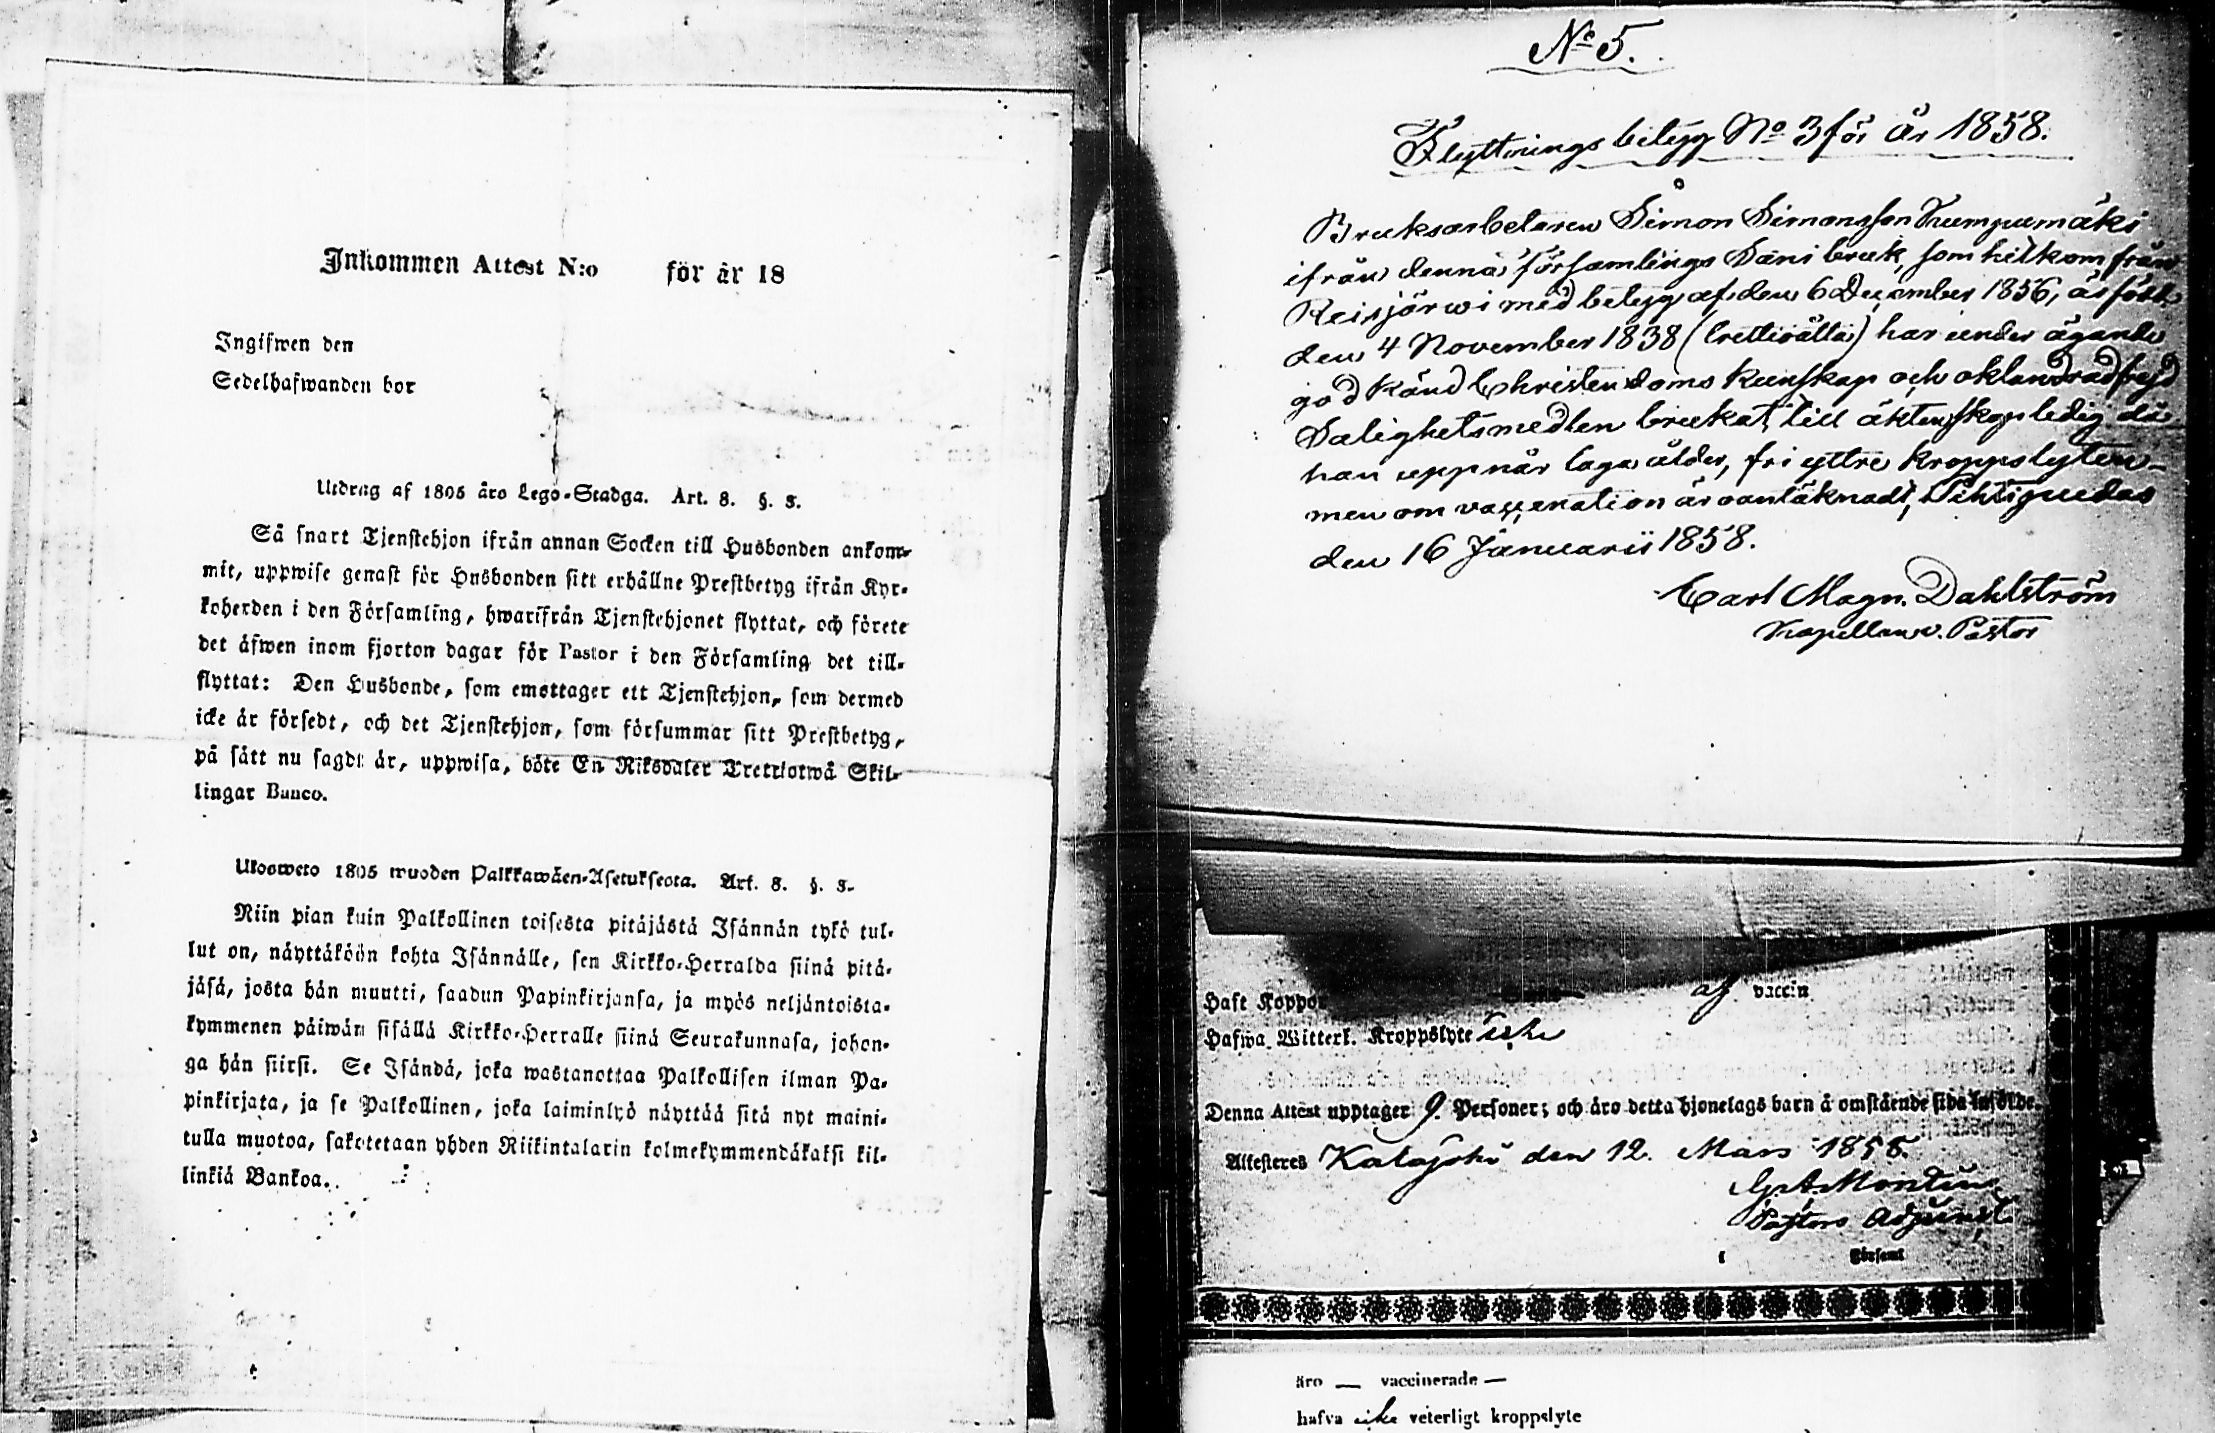 Inkommen Attest N:o för år 18
Ingifwen den
Sedelhafwanden bor
Utdrag af 1805 års Lego-Stadga. Art. 8. §. 3.
Så snart Tjenstehjon ifrån annan Socken till Husbonden ankom-
mit, uppwise genast för Husbonden sitt erhållne Prestbetyg ifrån Kyr-
koherden i den Församling, hwarifrån Tjenstehjonet flyttat, och förete
det äfwen inom fjorton dagar för Pastor i den Församling det till-
flyttat: Den Husbonde, som emottager ett Tjenstehjon, som dermed
icke är försedt, och det Tjenstehjon, som försummar sitt Prestbetyg,
på sätt nu sagdt är, uppwisa, böte En Riksdaler Trettiotwå Skil-
lingar Banco.
Ulosweto 1805 wuoden Palkkawäen-Asetuksesta. Art. 8. §. 3.
Niin pian kuin Palkollinen toisesta pitäjästä Isännän tykö tul-
lut on, näyttäköön kohta Isännälle, sen Kirkko-Herralda siinä pitä-
jäsä, josta hän muutti, saadun Papinkirjansa, ja myös neljäntoista-
kymmenen päiwän sisällä Kirkko-Herralle siinä Seurakunnasa, johon-
ga hän siirsi. Se Isändä, joka wastanottaa Palkollisen ilman Pa-
pinkirjata, ja se Palkollinen, joka laiminlyö näyttää sitä nyt maini-
tulla muotoa, sakotetaan yhden Riikintalarin kolmekymmendäkaksi kil-
linkiä Bankoa.
No 5.
Flyttningsbetyg No 3 för år 1858.
Bruksarbetaren Simon Simonsson Kumpumäki
ifrån denna församlings Säni bruk, som hitkom från
Reisjärwi med betyg af den 6 December 1856, är född
den 4 November 1838 (trettioåtta) har under ägande
god känd Christendoms kunskap och oklandrad frejd
Salighetsmedlen brukat, till äktenskap ledig då
han uppnår laga ålder, fri yttre kroppslyten
men om vaccination är oantäknadt, Pihtipudas
den 16 Januarii 1858.
Carl Magn. Dahlström
Kapellan v. Pastor
Haft Koppor af vaccin
Hafwa Witterl. Kroppslyte icke
Denna Attest upptager 9. Personer; och äro detta hjonelags barn å omstående sida
Attesteres Kalajoki den 12. Mars 1858.
G. A. Montin
Pastors Adjunct
i Församl
äro — vaccinerade —
hafva icke veterligt kroppslyte